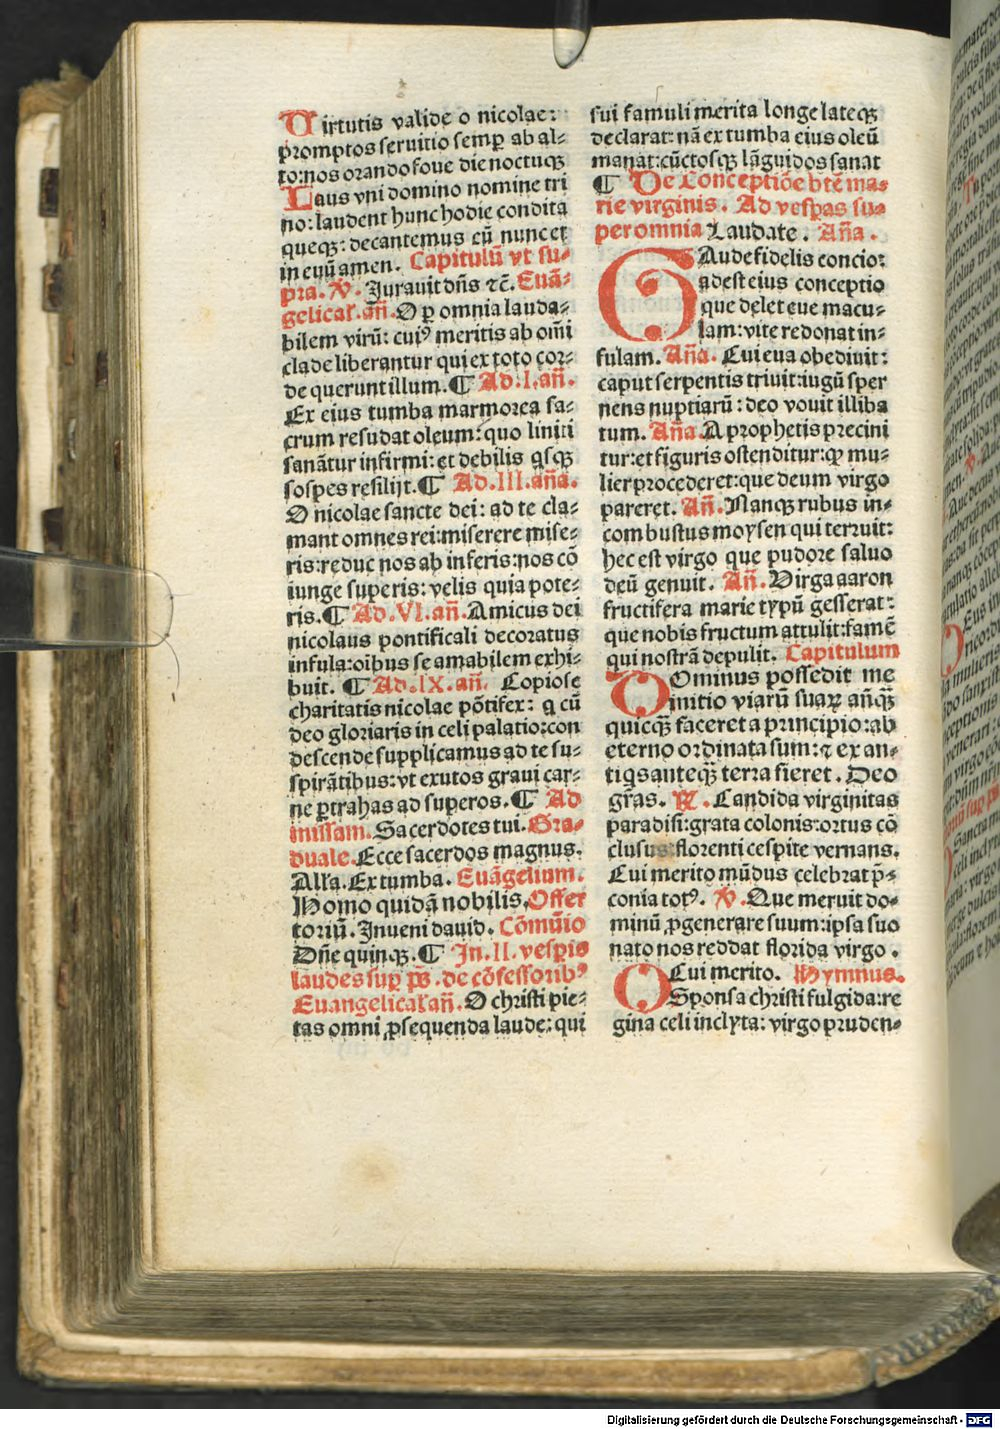 Virtutis valide o nicolae:
promptos seruitio semꝑ ab al-
to:nos orando foue die noctuqꝫ
Laus vni domino nomine tri
no: laudent hunc hodie condita
queqꝫ: decantemus cū nunc et
in euū amen. Capitulū vt su-
pra. ℣. Jurauit dn̄s ⁊c̄. Euā-
gelicaꝉ. an̄. O ꝑ omnia lauda-
bilem virū: cuiꝰ meritis ab om̄i
clade liberantur qui ex toto cor-
de querunt illum. ¶ Ad. I. an̄.
Ex eius tumba marmorea sa-
crum resudat oleum: quo liniti
sanātur infirmi: et debilis qsqꝫ
sospes resilijt. ¶ Ad. III. an̄a.
O nicolae sancte dei: ad te cla-
mant omnes rei: miserere mise-
ris: reduc nos ab inferis: nos cō
iunge superis: velis quia pote-
ris. ¶ Ad. VI. an̄. Amicus dei
nicolaus pontificali decoratus
infula: oibus se amabilem exhi-
buit. ¶ Ad. IX. an̄. Copiose
charitatis nicolae pōtifex: q cū
deo gloriaris in celi palatio: con
descende supplicamus ad te su-
spirātibus: vt exutos graui car-
ne ꝑtrahas ad superos. ¶ Ad
missam. Sacerdotes tui. Gra-
duale. Ecce sacerdos magnus.
Alla. Ex tumba. Euāgelium.
Homo quidā nobilis. Offer
toriū. Inueni dauid. Cōmuīo
Dn̄e quinqꝫ. ¶ In. II. vespis
laudes suꝑ ps̄. de cōfessoribꝰ
Euangelicaꝉ an̄. O christi pie-
tas omni ꝓsequenda laude: qui
sui famuli merita longe lateqꝫ
declarat: nā ex tumba eius oleū
manat: cūctosqꝫ lāguidos sanat
¶ De Conceptiōe bt̄e ma-
rie virginis. Ad vesꝑas su-
per omnia Laudate. An̄a.
Gaude fidelis concio:
adest eius conceptio
que delet eue macu-
lam: vite redonat in-
fulam. An̄a. Cui eua obediuit:
caput serpentis triuit: iugū sper
nens nuptiarū: deo vouit illiba
tum. An̄a. A prophetis precini
tur: et figuris ostenditur: ꝙ mu-
lier procederet: que deum virgo
pareret. An̄. Nanqꝫ rubus in-
combustus moysen qui terruit:
hec est virgo que pudore saluo
deū genuit. An̄. Virga aaron
fructifera marie typū gesserat:
que nobis fructum attulit: famē
qui nostrā depulit. Capitulum
Dominus possedit me
initio viarū suaꝝ an̄qꝫ
quicqꝫ faceret a principio: ab
eterno ordinata sum: ⁊ ex an-
tiqs anteqꝫ terra fieret. Deo
gr̄as. ℟. Candida virginitas
paradisi: grata colonis: ortus cō
clusus: florenti cespite vernans.
Cui merito mūdus celebrat p̄-
conia totꝰ. ℣. Que meruit do-
minū ꝓgenerare suum: ipsa suo
nato nos reddat florida virgo.
Cui merito. Hymnus.
O Sponsa christi fulgida: re
gina celi inclyta: virgo pruden-
Digitalisierung gefördert durch die Deutsche Forschungsgemeinschaft - DFG